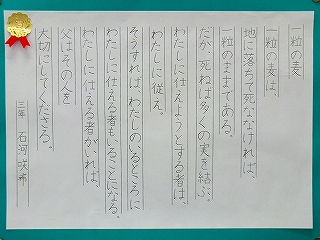 一粒の麦
一粒の麦は、
地に落ちて死ななければ、
一粒のままである。
だが、死ねば多くの実を結ぶ。
わたしに仕えようとする者は、
わたしに従え。
そうすれば、わたしのいるところに
わたしに仕える者もいることになる。
わたしに仕える者がいれば、
父はその人を
大切にしてくださる。
三年 石河